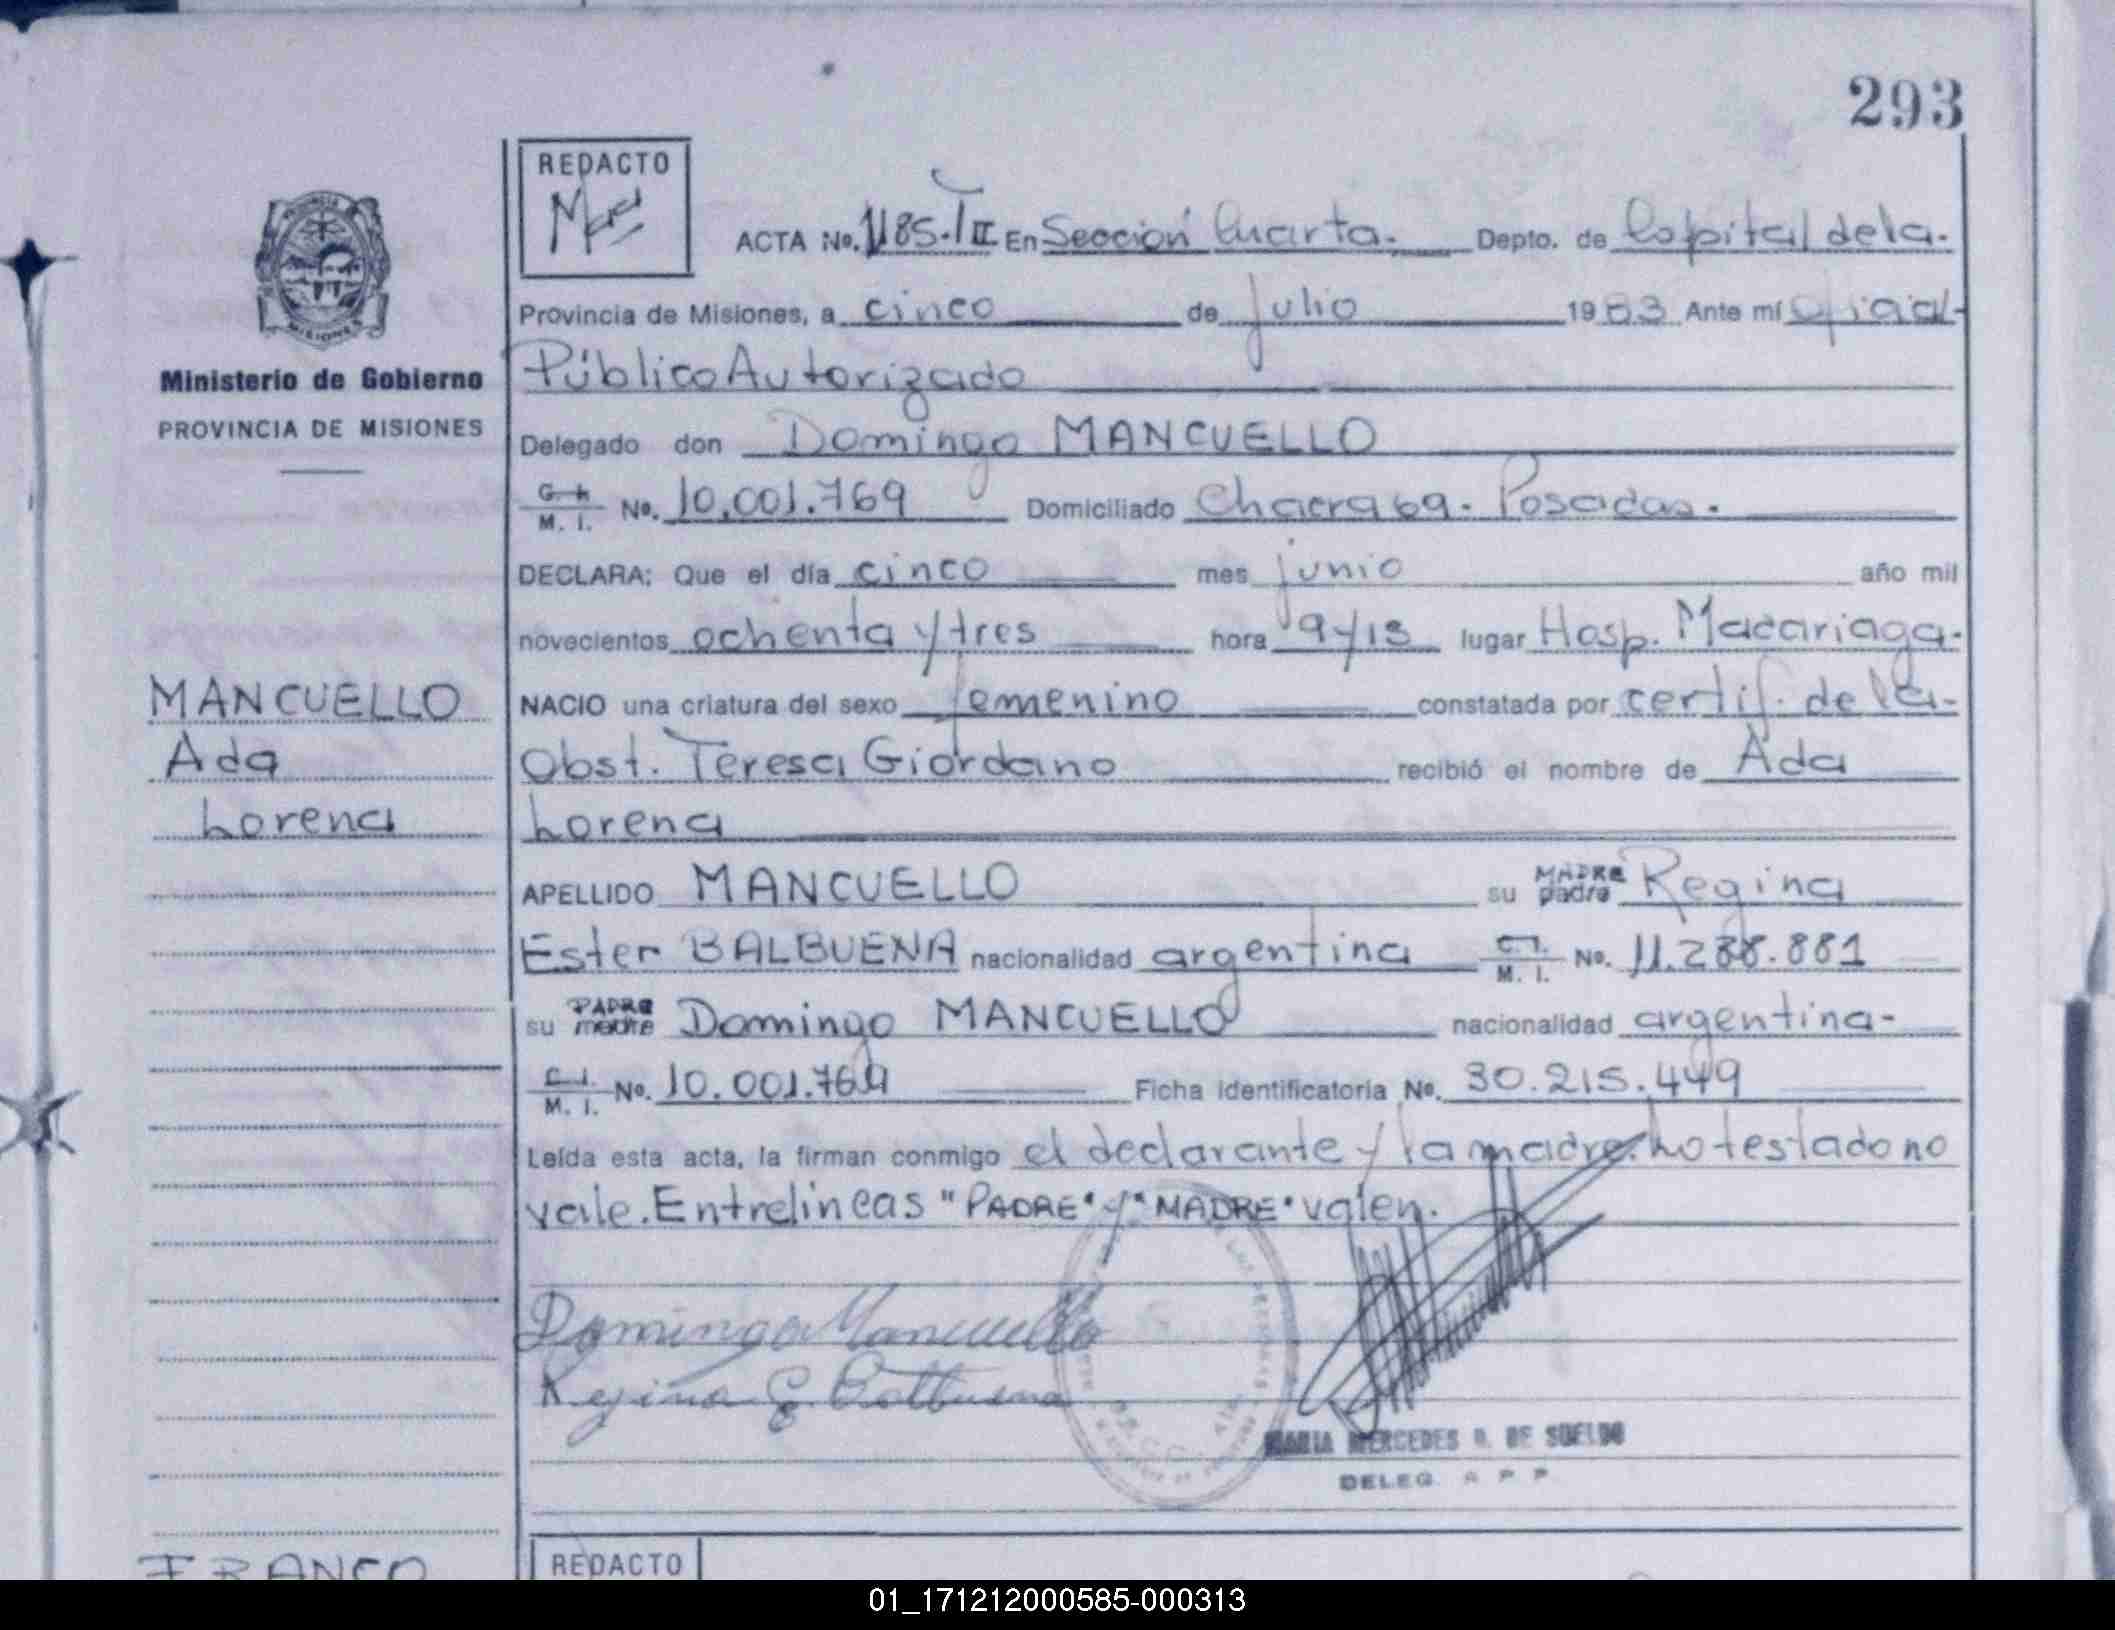 293
REDACTO
ACTA No. 1185. T III En Sección Cuarta. Depto. de Capital de la.
Provincia de Misiones, a cinco de julio 1983 Ante mí Oficial
Ministerio de Gobierno
PROVINCIA DE MISIONES
Público Autorizado
Delegado don Domingo MANCUELLO
M. I. No. 10.001.769 Domiciliado Chacra 69. Posadas.
DECLARA: Que el día cinco mes junio año mil
novecientos ochenta y tres hora 9 y 15 lugar Hosp. Madariaga.
MANCUELLO
Ada
Lorena
NACIO una criatura del sexo femenino constatada por certif. de la
Obst. Teresa Giordano recibió el nombre de Ada
Lorena
APELLIDO MANCUELLO su padre MADRE Regina
Ester BALBUENA nacionalidad argentina C. I. M. I. No. 11.238.881
su madre PADRE Domingo MANCUELLO nacionalidad argentina-
C. I. M. I. No. 10.001.769 Ficha identificatoria No. 30.215.449
Leída esta acta, la firman conmigo el declarante y la madre. Lo testado no
vale. Entrelineas "PADRE" y "MADRE" valen.
Domingo Mancuello
Regina E. Balbuena
MARIA MERCEDES D. DE SUELDO
DELEG. A P P
FRANCO
REDACTO
01_171212000585-000313